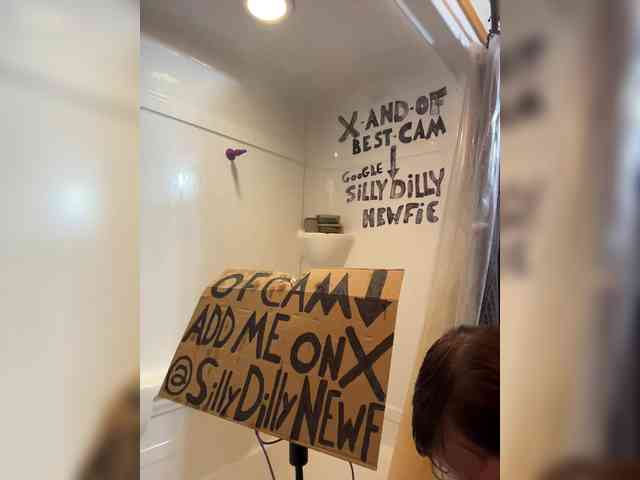 X-AND-OF
BEST-CAM
GOOGLE
SiLLY DiLLY
NEWFiE
OFCAM
ADD ME ON X
@SillyDillyNEWF